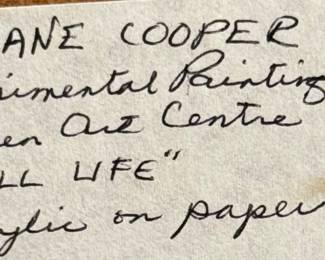 ANE COOPER
imental Painting
en Art Centre
LL LIFE"
ylic on paper